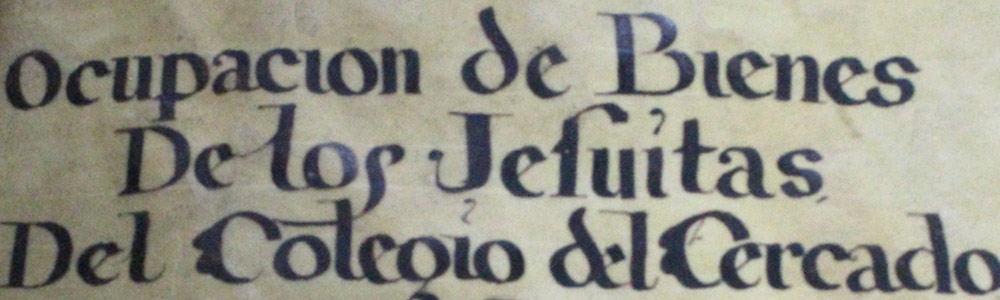 Ocupacion de Bienes
De los Jeſuitas
Del Colegio del Cercado